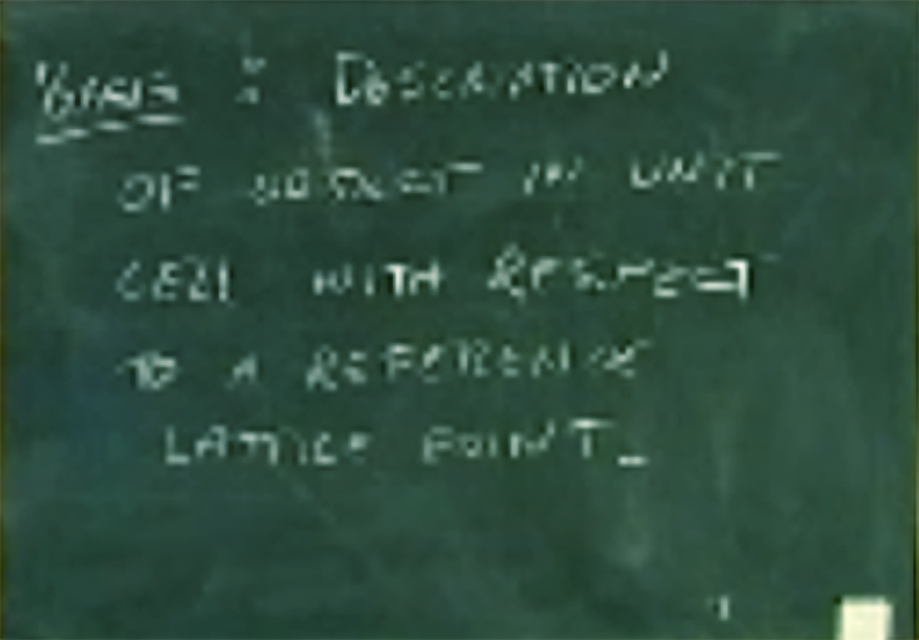 BASIS : DESCRIPTION
OF OBJECT IN UNIT
CELL WITH RESPECT
TO A REFERENCE
LATTICE POINT.